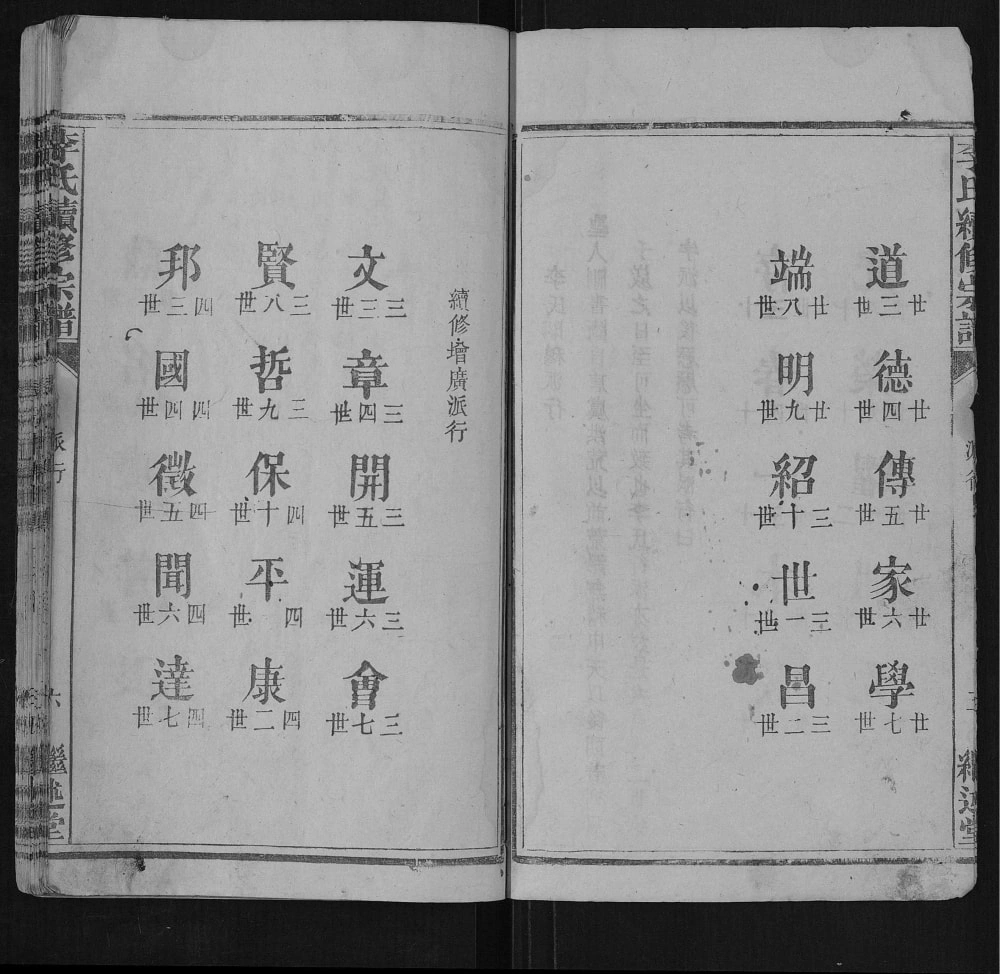 李氏續修宗譜
派行
繼述堂
道
廿三世
德
廿四世
傳
廿五世
家
廿六世
學
廿七世
端
廿八世
明
廿九世
紹
三十世
世
三一世
昌
三二世
續修增廣派行
文
三三世
章
三四世
開
三五世
運
三六世
會
三七世
賢
三八世
哲
三九世
保
四十世
平
四世
康
四二世
邦
四三世
國
四四世
徵
四五世
聞
四六世
達
四七世
李氏續修宗譜
派行
六
繼述堂